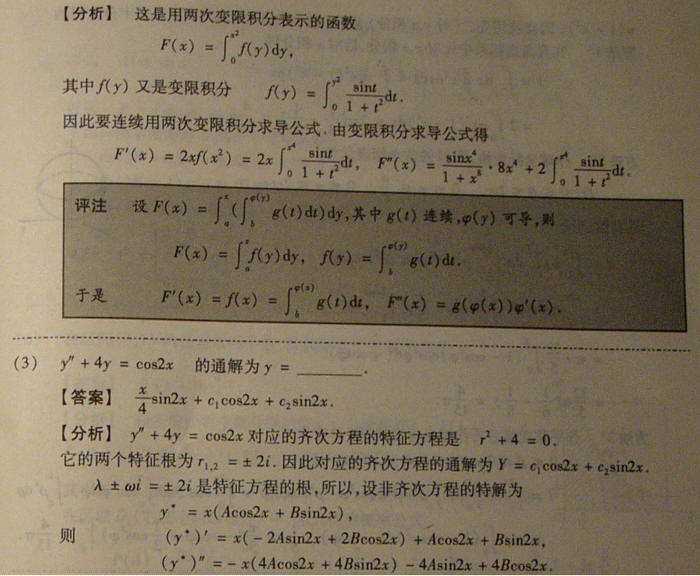 【分析】 这是用两次变限积分表示的函数
F(x) = ∫₀^{x²} f(y)dy,
其中f(y) 又是变限积分 f(y) = ∫₀^{y²} sint/(1 + t²) dt.
因此要连续用两次变限积分求导公式. 由变限积分求导公式得
F′(x) = 2xf(x²) = 2x ∫₀^{x⁴} sint/(1 + t²) dt, F″(x) = sinx⁴/(1 + x⁸) · 8x⁴ + 2 ∫₀^{x⁴} sint/(1 + t²) dt.
评注 设 F(x) = ∫ₐ^x (∫_b^{φ(y)} g(t)dt)dy,其中 g(t) 连续,φ(y) 可导,则
F(x) = ∫ₐ^x f(y)dy, f(y) = ∫_b^{φ(y)} g(t)dt.
于是 F′(x) = f(x) = ∫_b^{φ(x)} g(t)dt, F″(x) = g(φ(x))φ′(x).
(3) y″ + 4y = cos2x 的通解为 y = ________.
【答案】 x/4 sin2x + c₁cos2x + c₂sin2x.
【分析】 y″ + 4y = cos2x 对应的齐次方程的特征方程是 r² + 4 = 0.
它的两个特征根为 r₁,₂ = ± 2i. 因此对应的齐次方程的通解为 Y = c₁cos2x + c₂sin2x.
λ ± ωi = ± 2i 是特征方程的根,所以,设非齐次方程的特解为
y* = x(Acos2x + Bsin2x),
则 (y*)′ = x(− 2Asin2x + 2Bcos2x) + Acos2x + Bsin2x,
(y*)″ = − x(4Acos2x + 4Bsin2x) − 4Asin2x + 4Bcos2x.